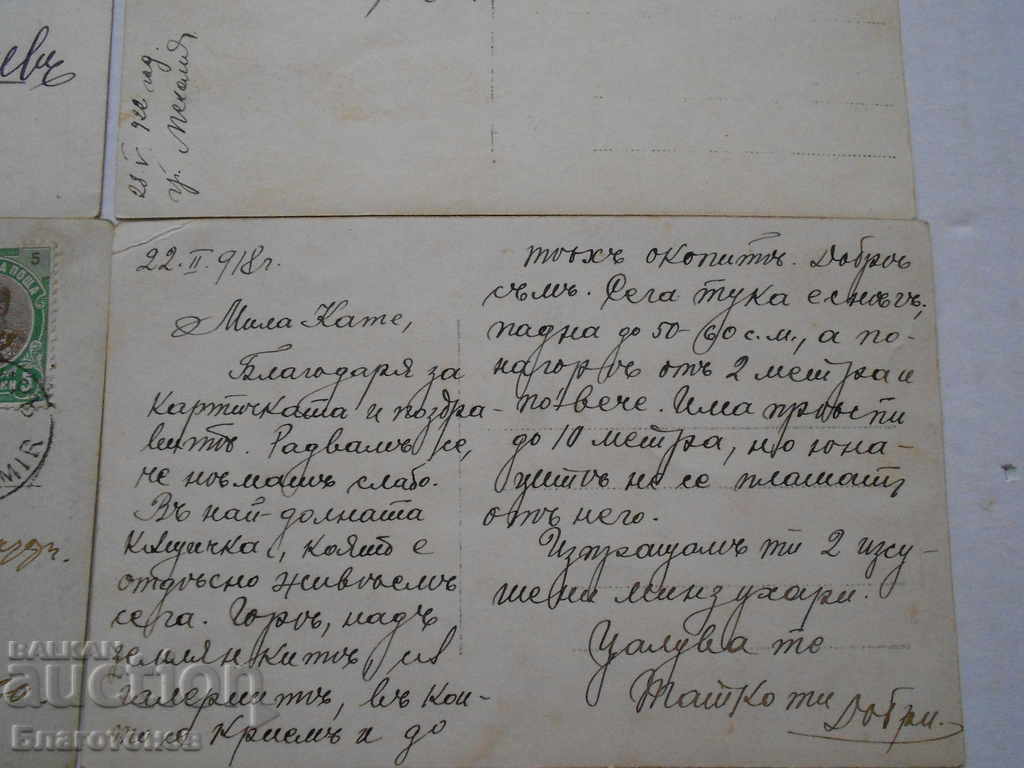 28 V. 922 год.
гр.
22. II. 918 г.
Мила Кате,
Благодаря за
картичката и поздра-
витѣ. Радвамъ се,
че нѣмашъ слабо.
Въ най-долната
къщичка, която е
отдѣсно живѣемъ
сега. Горѣ, надъ
землянкитѣ, са
галериитѣ, въ кои-
то се криемъ и до
тѣхъ окопитѣ. Добрѣ
съмъ. Сега тука е снѣгъ,
падна до 50-60 с.м., а по-
нагорѣ отъ 2 метра и
повече. Има прѣспи
до 10 метра, но юна-
цитѣ не се плашатъ
отъ него.
Изпращамъ ти 2 изсу-
шени минзухари.
Цалува те
Татко ти
Добри.
5
MIR
BALKAN
auction
Благотонев